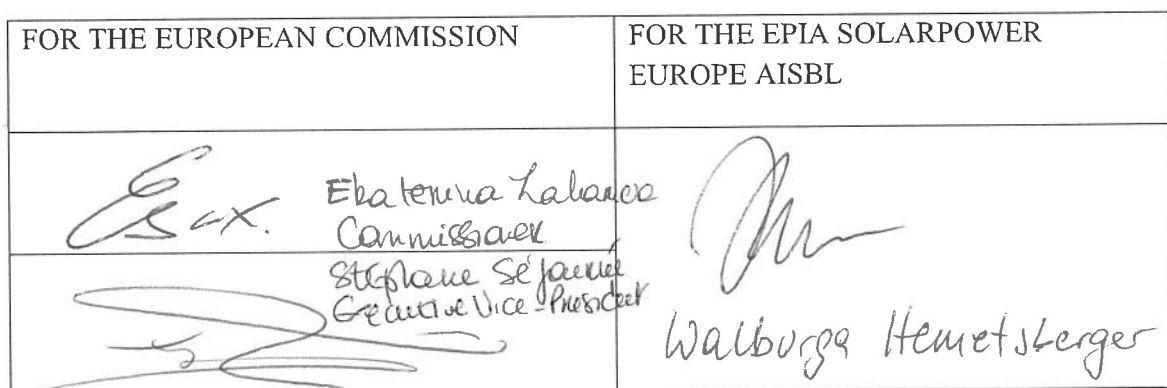 FOR THE EUROPEAN COMMISSION
FOR THE EPIA SOLARPOWER
EUROPE AISBL
Ekaterina Zaharieva
Commissioner
Stéphane Séjourné
Executive Vice-President
Walburga Hemetsberger